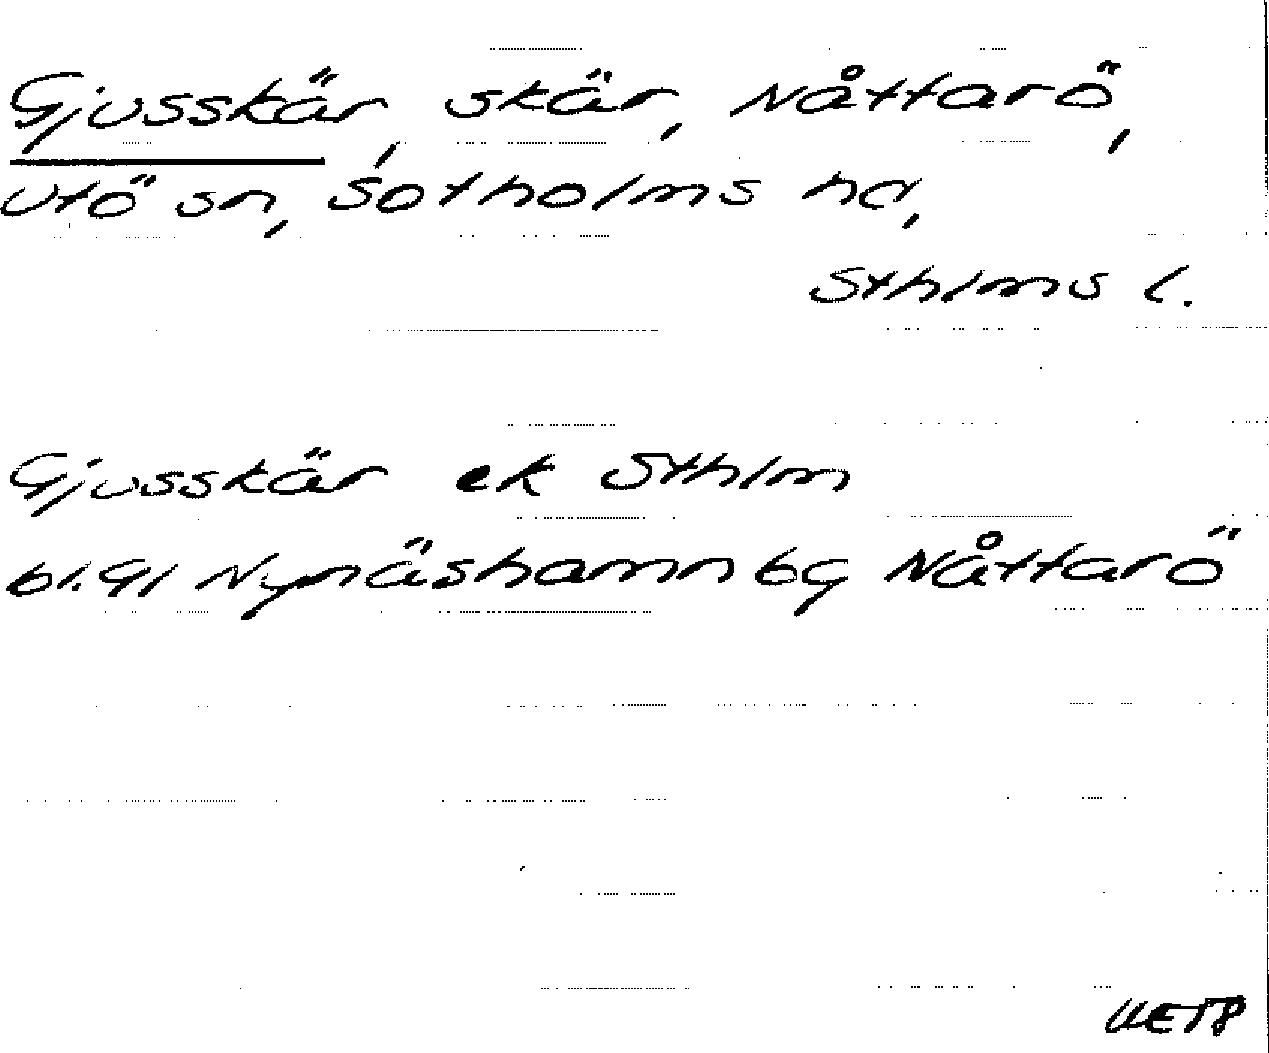 Gjusskär, skär, Nåttarö,
Utö sn, Sotholms hd,
Sthlms l.
Gjusskär ek Sthlm
bl. 91 Nynäshamn bg Nåttarö